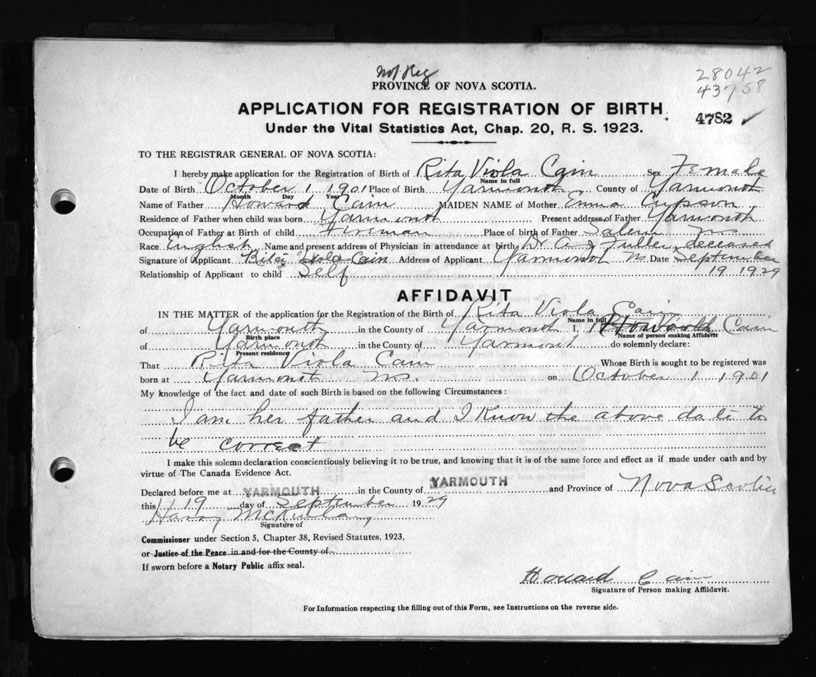 Not Reg
28042
PROVINCE OF NOVA SCOTIA.
43758
APPLICATION FOR REGISTRATION OF BIRTH
4782 ✓
Under the Vital Statistics Act, Chap. 20, R. S. 1923.
TO THE REGISTRAR GENERAL OF NOVA SCOTIA:
I hereby make application for the Registration of Birth of Rita Viola Cain Sex Female
Name in full
Date of Birth October 1 1901 Place of Birth Yarmouth County of Yarmouth
Month Day Year
Name of Father Howard Cain MAIDEN NAME of Mother Emma
Residence of Father when child was born Yarmouth Present address of Father Yarmouth
Occupation of Father at Birth of child Fireman Place of birth of Father Salem Ns
Race English Name and present address of Physician in attendance at birth Dr Fuller, deceased
Signature of Applicant Rita Viola Cain Address of Applicant Yarmouth Ns Date September
Relationship of Applicant to child Self 19 1929
AFFIDAVIT
IN THE MATTER of the application for the Registration of Birth of Rita Viola Cain
Name in full
of Yarmouth in the County of Yarmouth I, Howard Cain
Birth place Name of person making Affidavit
of Yarmouth in the County of Yarmouth do solemnly declare:
Present residence
That Rita Viola Cain Whose Birth is sought to be registered was
born at Yarmouth Ns. on October 1 1901
My knowledge of the fact and date of such Birth is based on the following Circumstances:
I am her father and I Know the above date to
be correct
I make this solemn declaration conscientiously believing it to be true, and knowing that it is of the same force and effect as if made under oath and by
virtue of The Canada Evidence Act.
Declared before me at YARMOUTH in the County of YARMOUTH and Province of Nova Scotia
this 19 day of September 1929
Harry
Signature of
Commissioner under Section 5, Chapter 38, Revised Statutes, 1923,
or Justice of the Peace in and for the County of
If sworn before a Notary Public affix seal.
Howard Cain
Signature of Person making Affidavit.
For Information respecting the filling out of this Form, see Instructions on the reverse side.